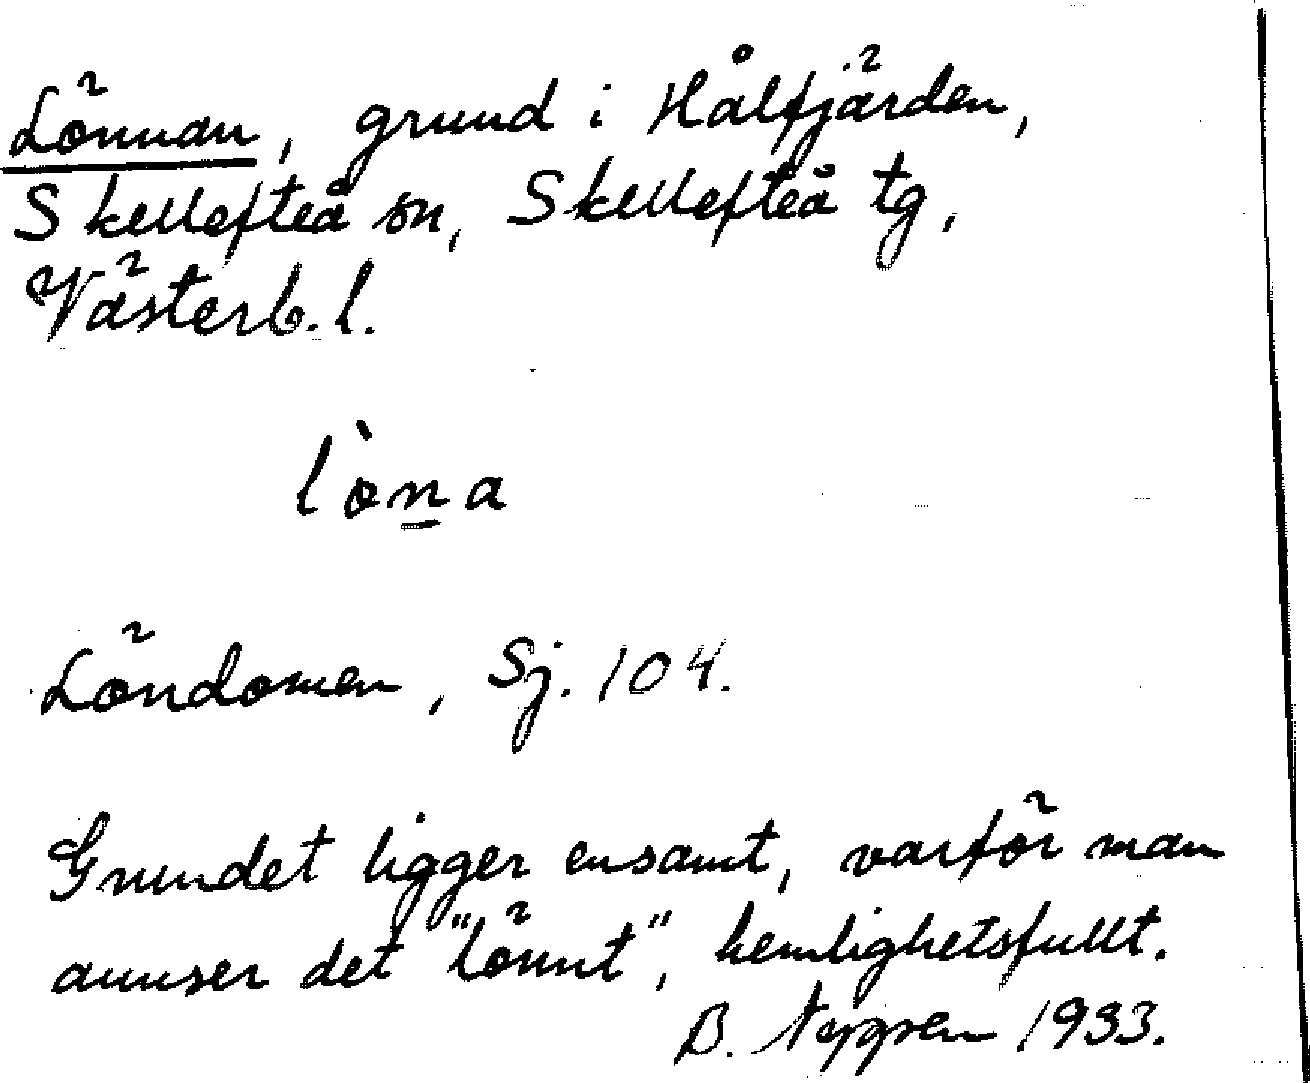 Lönnan, grund i Hålfjärden,
Skellefteå sn, Skellefteå tg,
Västerb. l.
l`òna
Löndomen, Sj. 104.
Grundet ligger ensamt, varför man
anuser det "lönnt", hemlighetsfullt.
B. 1933.